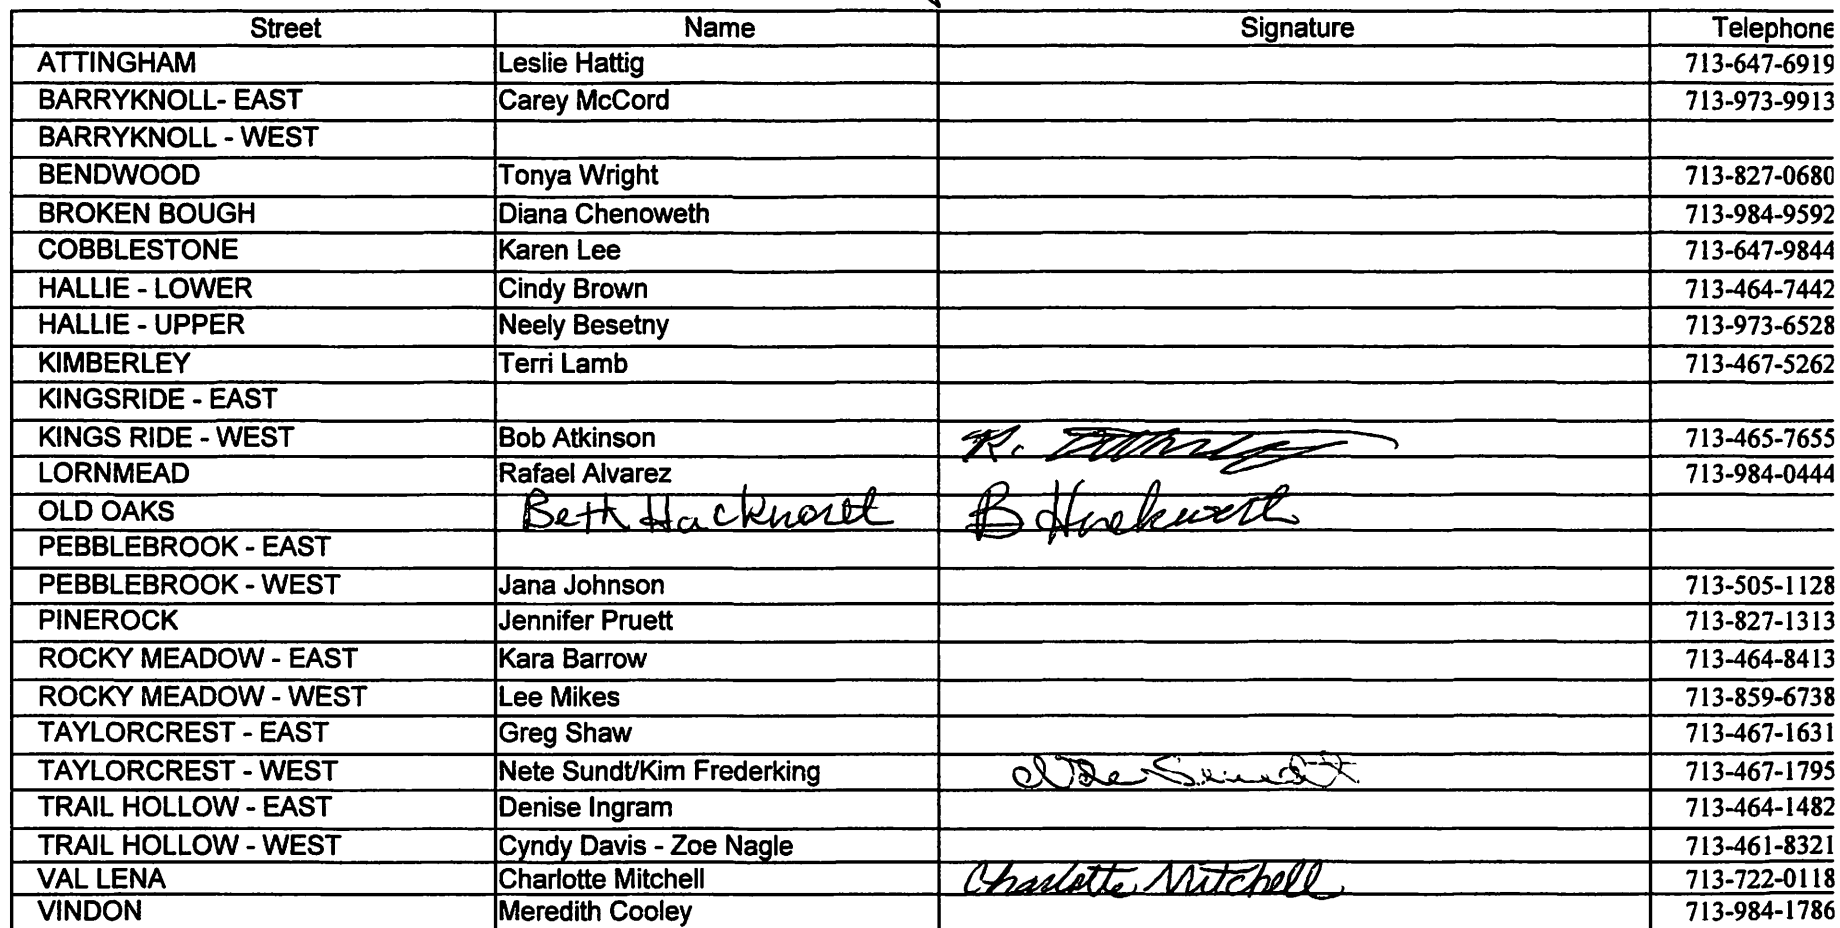 Street Name Signature Telephone
ATTINGHAM Leslie Hattig 713-647-6919
BARRYKNOLL- EAST Carey McCord 713-973-9913
BARRYKNOLL - WEST
BENDWOOD Tonya Wright 713-827-0680
BROKEN BOUGH Diana Chenoweth 713-984-9592
COBBLESTONE Karen Lee 713-647-9844
HALLIE - LOWER Cindy Brown 713-464-7442
HALLIE - UPPER Neely Besetny 713-973-6528
KIMBERLEY Terri Lamb 713-467-5262
KINGSRIDE - EAST
KINGS RIDE - WEST Bob Atkinson R. 713-465-7655
LORNMEAD Rafael Alvarez 713-984-0444
OLD OAKS Beth Hackworth B Hackworth
PEBBLEBROOK - EAST
PEBBLEBROOK - WEST Jana Johnson 713-505-1128
PINEROCK Jennifer Pruett 713-827-1313
ROCKY MEADOW - EAST Kara Barrow 713-464-8413
ROCKY MEADOW - WEST Lee Mikes 713-859-6738
TAYLORCREST - EAST Greg Shaw 713-467-1631
TAYLORCREST - WEST Nete Sundt/Kim Frederking Nete Sundt 713-467-1795
TRAIL HOLLOW - EAST Denise Ingram 713-464-1482
TRAIL HOLLOW - WEST Cyndy Davis - Zoe Nagle 713-461-8321
VAL LENA Charlotte Mitchell Charlotte Mitchell 713-722-0118
VINDON Meredith Cooley 713-984-1786